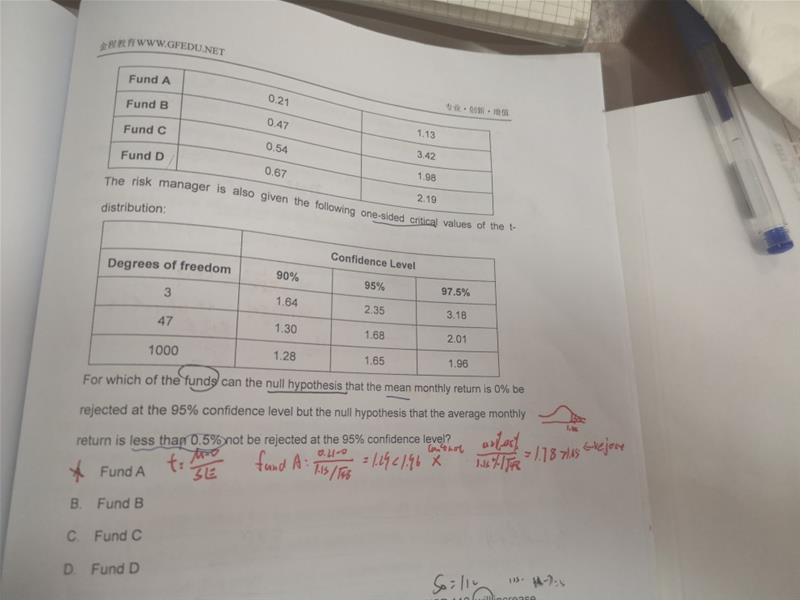 金程教育WWW.GFEDU.NET
专业·创新·增值
Fund A 0.21 1.13
Fund B 0.47 3.42
Fund C 0.54 1.98
Fund D 0.67 2.19
The risk manager is also given the following one-sided critical values of the t-
distribution:
Confidence Level
Degrees of freedom 90% 95% 97.5%
3 1.64 2.35 3.18
47 1.30 1.68 2.01
1000 1.28 1.65 1.96
For which of the funds can the null hypothesis that the mean monthly return is 0% be
rejected at the 95% confidence level but the null hypothesis that the average monthly
return is less than 0.5% not be rejected at the 95% confidence level?
A. Fund A
t = 
fund A: = 1.29 < 1.96 = 1.78 >
B. Fund B
C. Fund C
D. Fund D
S₀ = 110
increase